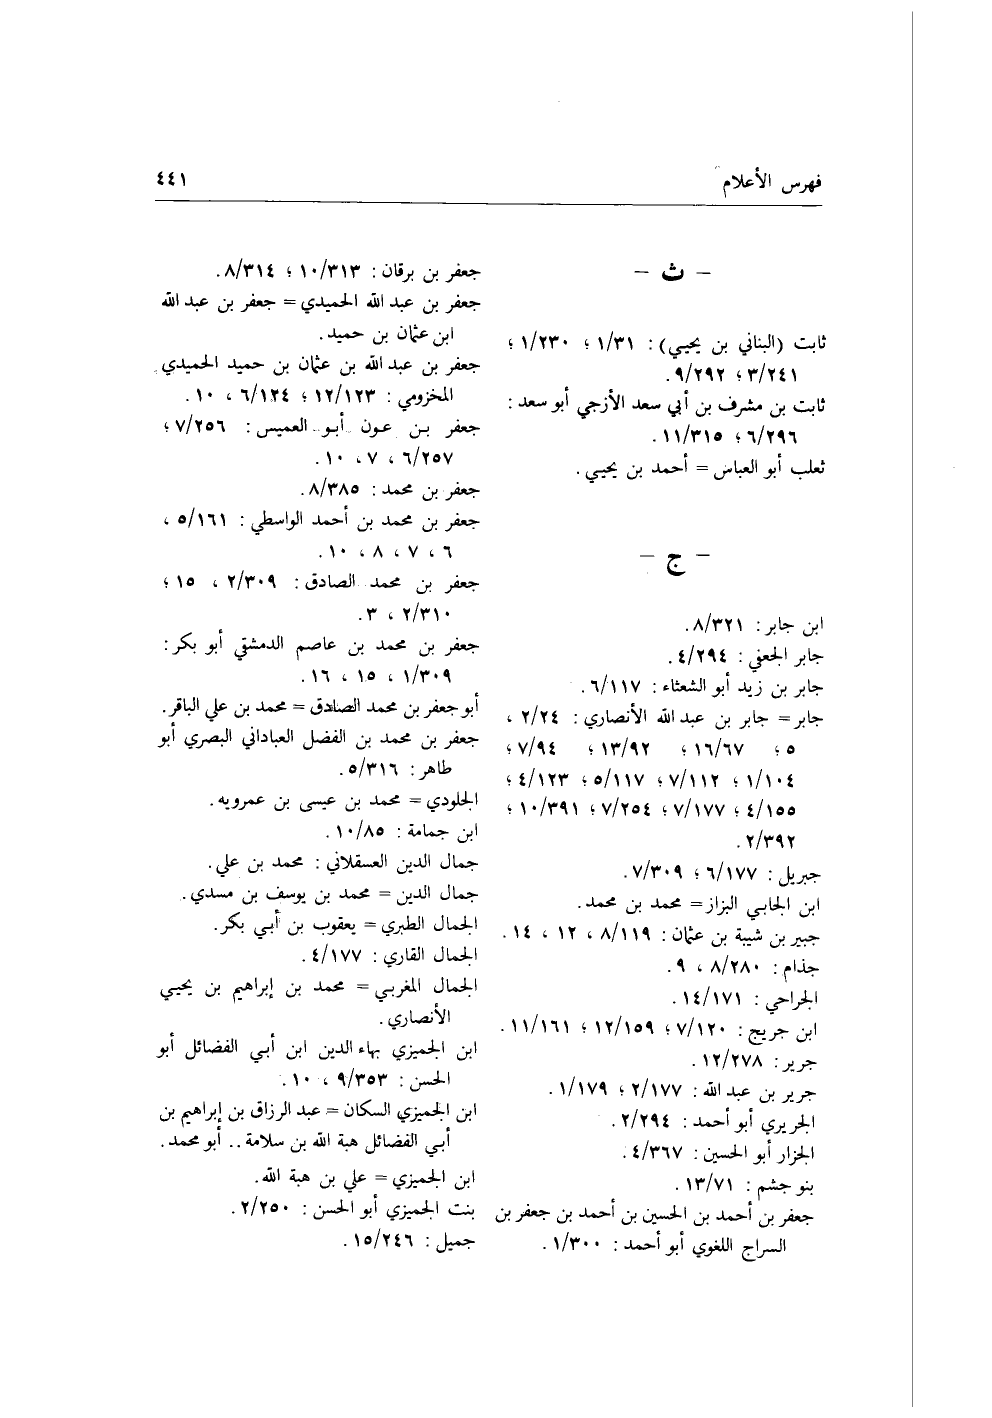 فهرس الأعلام
٤٤١
- ث -
ثابت (البناني بن يحيي) : ١/٣١ ؛ ١/٢٣٠ ؛
٣/٢٤١ ؛ ٩/٢٩٢.
ثابت بن مشرف بن أبي سعد الأزجي أبو سعد :
٦/٢٩٦ ؛ ١١/٣١٥.
ثعلب أبو العباس = أحمد بن يحيي.
- ج -
ابن جابر : ٨/٣٢١.
جابر الجعفي : ٤/٢٩٤.
جابر بن زيد أبو الشعثاء : ٦/١١٧.
جابر = جابر بن عبد الله الأنصاري : ٢/٢٤ ،
٥ ؛ ١٦/٦٧ ؛ ١٣/٩٢ ؛ ٧/٩٤ ؛
١/١٠٤ ؛ ٧/١١٢ ؛ ٥/١١٧ ؛ ٤/١٢٣ ؛
٤/١٥٥ ؛ ٧/١٧٧ ؛ ٧/٢٥٤ ؛ ١٠/٣٩١ ؛
٢/٣٩٢.
جبريل : ٦/١٧٧ ؛ ٧/٣٠٩.
ابن الجابي البزاز = محمد بن محمد.
جبير بن شيبة بن عثمان : ٨/١١٩ ، ١٢ ، ١٤.
جذام : ٨/٢٨٠ ، ٩.
الجراحي : ١٤/١٧١.
ابن جريج : ٧/١٢٠ ؛ ١٢/١٥٩ ؛ ١١/١٦١.
جرير : ١٢/٢٧٨.
جرير بن عبد الله : ٢/١٧٧ ؛ ١/١٧٩.
الجريري أبو أحمد : ٢/٢٩٤.
الجزار أبو الحسين : ٤/٣٦٧.
بنو جشم : ١٣/٧١.
جعفر بن أحمد بن الحسين بن أحمد بن جعفر بن
السراج اللغوي أبو أحمد : ١/٣٠٠.
جعفر بن برقان : ١٠/٣١٣ ؛ ٨/٣١٤.
جعفر بن عبد الله الحميدي = جعفر بن عبد الله
ابن عثمان بن حميد.
جعفر بن عبد الله بن عثمان بن حميد الحميدي
المخزومي : ١٢/١٢٣ ؛ ٦/١٢٤ ، ١٠.
جعفر بن عون أبو العميس : ٧/٢٥٦ ؛
٦/٢٥٧ ، ٧ ، ١٠.
جعفر بن محمد : ٨/٣٨٥.
جعفر بن محمد بن أحمد الواسطي : ٥/١٦١ ،
٦ ، ٧ ، ٨ ، ١٠.
جعفر بن محمد الصادق : ٢/٣٠٩ ، ١٥ ؛
٢/٣١٠ ، ٣.
جعفر بن محمد بن عاصم الدمشقي أبو بكر :
١/٣٠٩ ، ١٥ ، ١٦.
أبو جعفر بن محمد الصادق = محمد بن علي الباقر.
جعفر بن محمد بن الفضل العباداني البصري أبو
طاهر : ٥/٣١٦.
الجلودي = محمد بن عيسى بن عمرويه.
ابن جمامة : ١٠/٨٥.
جمال الدين العسقلاني : محمد بن علي.
جمال الدين = محمد بن يوسف بن مسدي.
الجمال الطبري = يعقوب بن أبي بكر.
الجمال القاري : ٤/١٧٧.
الجمال المغربي = محمد بن إبراهيم بن يحيي
الأنصاري.
ابن الجميزي بهاء الدين ابن أبي الفضائل أبو
الحسن : ٩/٣٥٣ ، ١٠.
ابن الجميزي السكان = عبد الرزاق بن إبراهيم بن
أبي الفضائل هبة الله بن سلامة .. أبو محمد.
ابن الجميزي = علي بن هبة الله.
بنت الجميزي أبو الحسن : ٢/٢٥٠.
جميل : ١٥/٢٤٦.